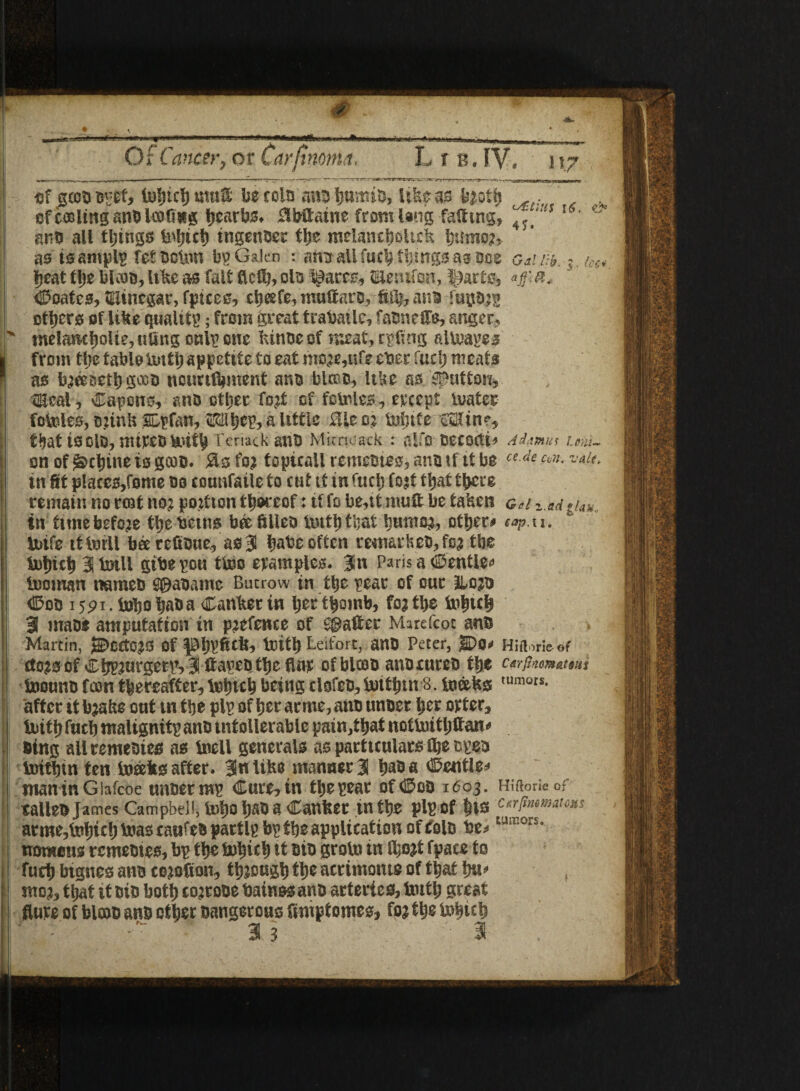 Of Cancer, or Carsinoma. LIB. IV. 117
of good dyet, which must be cold and humid, like as broth
of cooling and loosing hearbs. Abstaine from long fasting,
Ætius 16. &
45.
and all things which ingender the melancholick humor,
as is amply set down by Galen : and all such things as doe
Gal lib. 3. loc.
heat the blood, like as salt flesh, old Hares, Uenison, Harts,
aff.
Goates, Uinegar, spices, cheese, mustard, fish, and sundry
others of like quality ; from great travaile, sadnesse, anger,
melancholie, using only one kinde of meat, rysing alwayes
from the table with appetite to eat more, use ever such meats
as breedeth good nourishment and blood, like as Mutton,
Ueal, Capons, and other sort of fowles, except water
fowles, drink Typsan, Whey, a little Ale or white Wine,
that is old, mixed with Teriack and Mitridack : also decocti-
Adamus Loni-
on of Schine is good. As for topicall remedies, and if it be
ce.de con. vale.
in fit places, some do counsaile to cut it in such sort that there
remain no root nor portion thereof : if so be, it must be taken
Gal 2. ad glau.
in time before the veins bee filled with that humor, other-
cap. 11.
wise it will bee residue, as I have often remarked, for the
which I will give you two examples. In Paris a Gentle-
woman named Madame Bucrow in the year of our Lord
God 1591. who had a Canker in her thomb, for the which
I made amputation in presence of Master Marescot and
Martin, Doctors of Physick, with Leifort, and Peter, Do-
Historie of
ctors of Chyrurgery, I stayed the flux of blood and cured the
Carsinomatous
wound soon thereafter, which being closed, within 8. weeks
tumors.
after it brake out in the ply of her arme, and under her oxter,
with such malignity and intollerable pain, that notwithstan-
ding all remedies as well generals as particulars she dyed
within ten weeks after. In like manner I had a Gentle-
man in Glascoe under my Cure, in the year of God 1603.
Historie of
called James Campbell, who had a Canker in the ply of his
Carsinomatous
arme, which was caused partly by the application of cold ve-
tumors.
nomous remedies, by the which it did grow in short space to
such bignes and corosion, through the acrimonie of that hu-
mor, that it did both corrode vaines and arteries, with great
fluxe of blood and other dangerous simptomes, for the which
I 3 I